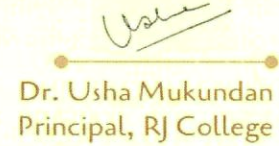 Usha
Dr. Usha Mukundan
Principal, RJ College